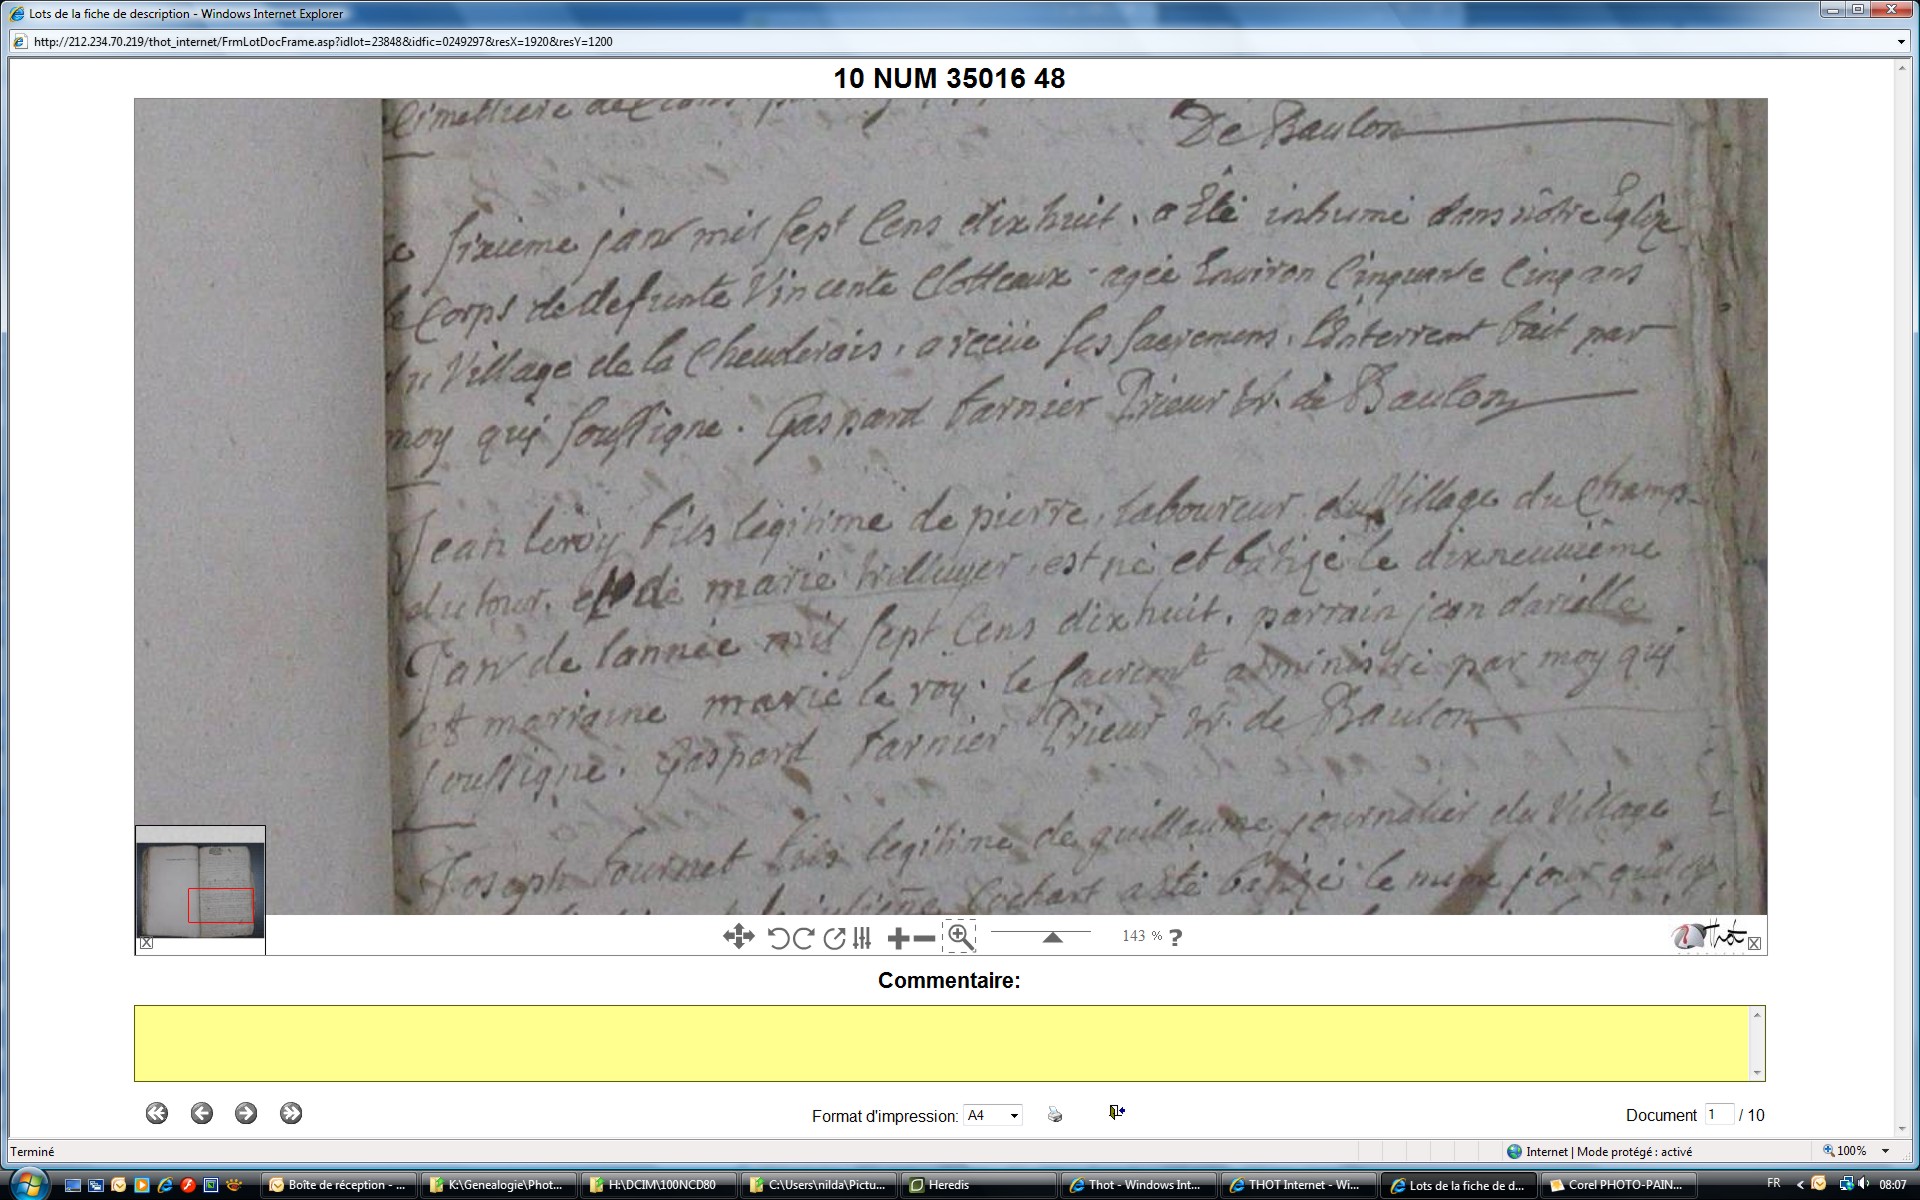 Lots de la fiche de description - Windows Internet Explorer
http://212.234.70.219/thot_internet/FrmLotDocFrame.asp?idlot=23848&idfic=0249297&resX=1920&resY=1200
10 NUM 35016 48
De Baulon
sixieme janv mil sept Cens dixhuit, a Eté inhumé dans nôtre Eglize
le Corps de deffunte Vincente Clotteaux agée Environ Cinquante Cinq ans
du Village de la Cheuderais, a reçüe ses sacremens, fait par
moy qui soussigne. Gaspard farnier Prieur Rr. de Baulon
Jean leroy fils legitime de pierre, laboureur du Village du Champ-
du four, et de marie est né et batizé le dixneuuième
Janv de l'année mil sept Cens dixhuit, parrain jean darielle
et marraine marie le roy. le sacremt administré par moy qui
soussigne. Gaspard farnier Prieur Rr. de Baulon
Joseph fournet fils legitime de guillaume journalier du Village
Cochart a été batizé le même jour
143 % ?
Thot
Commentaire:
Format d'impression: A4
Document 1 / 10
Terminé
Internet | Mode protégé : activé
100%
Boîte de réception - ...
K:\Genealogie\Phot...
H:\DCIM\100NCD80
C:\Users\nilda\Pictu...
Heredis
Thot - Windows Int...
THOT Internet - Wi...
Lots de la fiche de d...
Corel PHOTO-PAIN...
FR
08:07